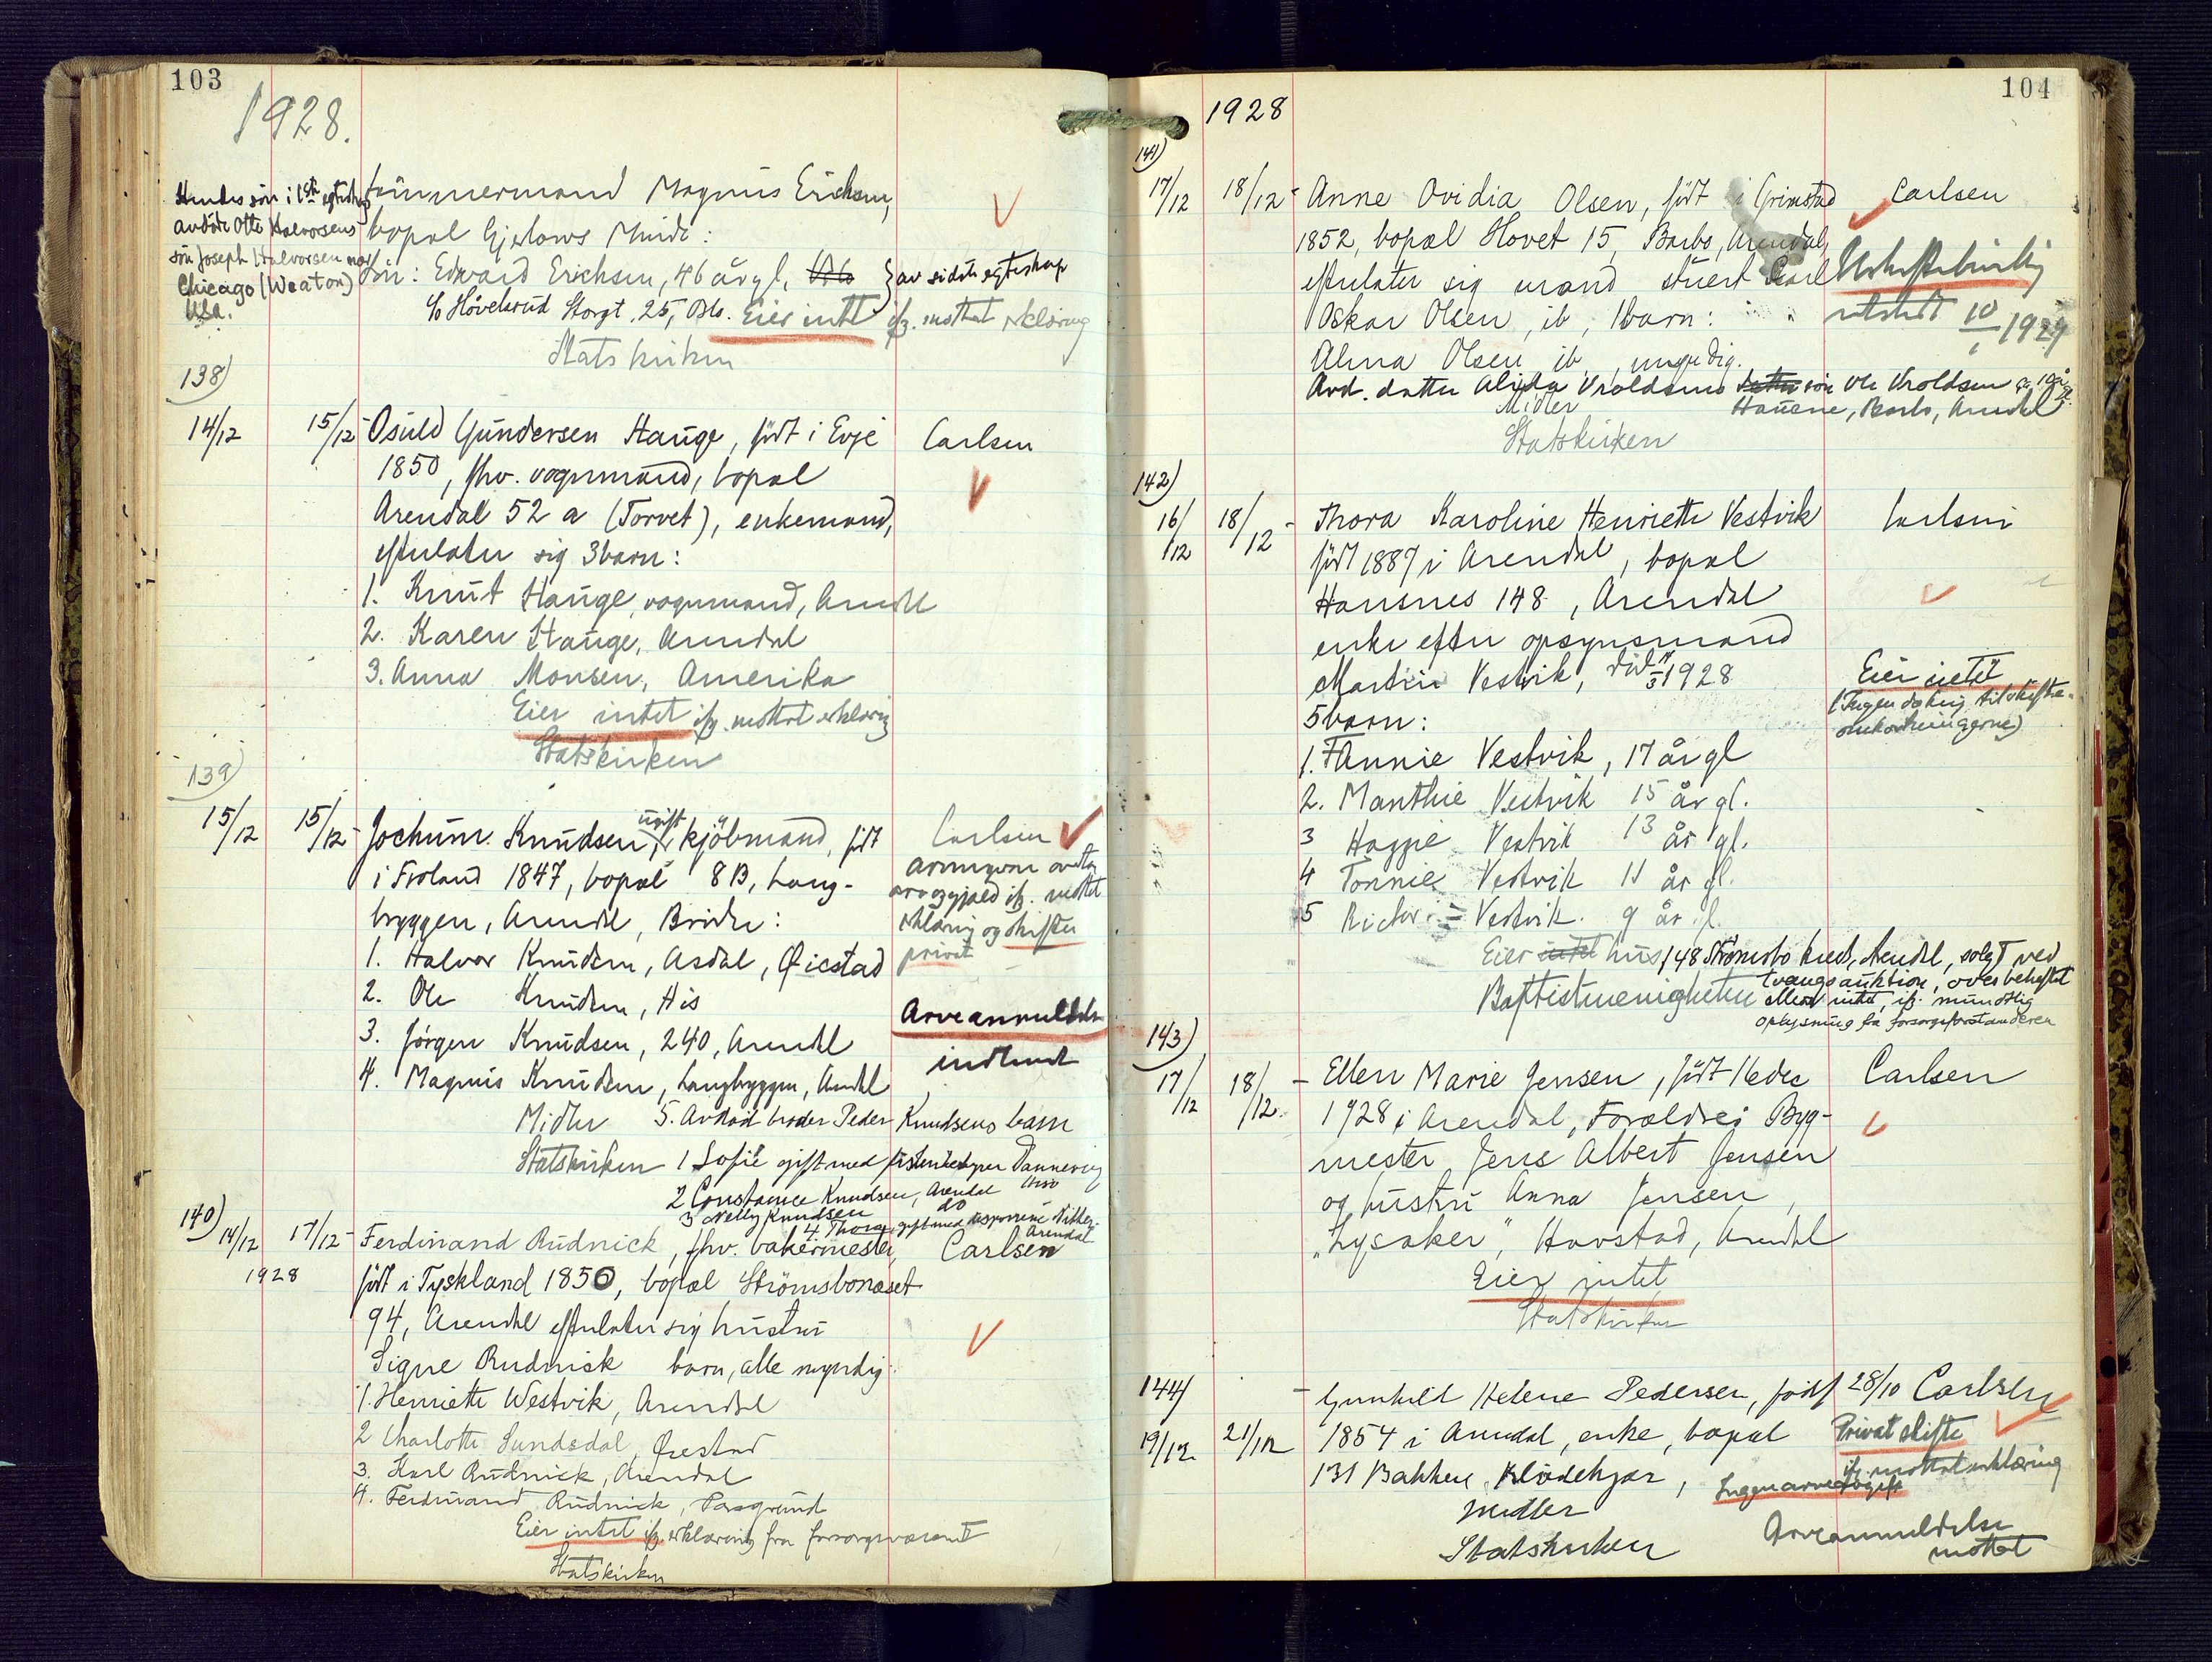 103
1928.
Hendes sön i 1ste egteskap
avdöde Otto Halvorsens
sön Joseph Halvorsen
Chicago (Weaton)
Usa.
tömmermand Magnus Erichsen,
bopæl Gjelows Minde:
Sön: Edvard Erichsen, 46 år gl, } av sidste egteskap
c/o Hövelsrud Storgt. 25, Oslo. Eier intet ifg. mottat erklæring
Statskirken
138)
14/12 15/12 - Osuld Gundersen Hauge, födt i Evje Carlsen
1850, fhv. vognmand, bopæl
Arendal 52 a (Torvet), enkemand,
efterlater sig 3 barn:
1. Knut Hauge, vognmand, Arendal
2. Karen Hauge, Arendal
3. Anna Monsen, Amerika
Eier intet ifg. mottat erklæring
Statskirken
139)
15/12 15/12 - Jochum Knudsen, ugift kjöbmand, födt Carlsen
i Froland 1847, bopæl 8 B, Lang-
bryggen, Arendal, Brödre:
1. Halvor Knudsen, Asdal, Øiestad
2. Ole Knudsen, His
3. Jörgen Knudsen, 240, Arendal
4. Magnus Knudsen, Langbryggen, Arendal
Arvingerne overtar
arv og gjæld ifg. mottat
erklæring og skifter
privat
Arveanmeldelse
indsendt
Midler 5. Avdöd broder Peder Knudsens barn
Statskirken 1 Sofie gift med Dannevig
2 Constance Knudsen, Arendal
3 Nelly Knudsen do
4. Thora gift med
Arendal
140)
14/12 17/12 - Ferdinand Rudnick, fhv. bakermester, Carlsen
1928
födt i Tyskland 1850, bopæl Strömsbonæset
94, Arendal efterlater sig hustru
Signe Rudnick barn, alle myndig:
1. Henriette Westvik, Arendal
2 Charlotte Sundsdal, Øiestad
3. Karl Rudnick, Arendal
4. Ferdinand Rudnick, Porsgrund
Eier intet ifg. erklæring fra forsorgsvæsenet
Statskirken
104
1928
141)
17/12 18/12 - Anne Ovidia Olsen, födt i Grimstad Carlsen
1852, bopæl Hovet 15, Barbo, Arendal,
efterlater sig mand stuert Carl
Oskar Olsen, ib, 1 barn:
Alma Olsen ib, myndig.
Uskiftebevilling
utstedt 10/1 1929
Avd. datter Alida Vroldsens sön Ole Vroldsen
Midler Hauene, Barbo, Arendal
Statskirken
142)
16/12 18/12 - Thora Karoline Henriette Vestvik Carlsen
födt 1887 i Arendal, bopæl
Hansnes 148, Arendal
enke efter opsynsmand
Martin Vestvik, död 1928
5 barn:
Eier intet
(Ingen dækning til skifte-
omkostningerne)
1. Fannie Vestvik, 17 år gl
2. Manthie Vestvik 15 år gl.
3 Haggie Vestvik 13 år gl.
4 Tonnie Vestvik 11 år gl.
5 Victor Vestvik. 9 år gl.
Eier intet hus 148 Strömsbo Arendal, solgt ved
tvangsauktion, overbeheftet
Baptistmenigheten ellers intet, ifg. mundtlig
oplysning fra forsorgsforstanderen
143)
17/12 18/12. - Ellen Marie Jensen, födt 16 dec Carlsen
1928 i Arendal, Forældre: Byg-
mester Jens Albert Jensen
og hustru Anna Jensen,
"Lysaker", Havstad, Arendal
Eier intet
Statskirken
144)
19/12 21/12 - Gunhild Helene Pedersen, födt 28/10 Carlsen
1854 i Arendal, enke, bopæl
131 Bakken Klödekjær,
Privat skifte
ifg. mottat erklæring
Ingen arveavgift
Midler
Statskirken
Arveanmeldelse
mottat